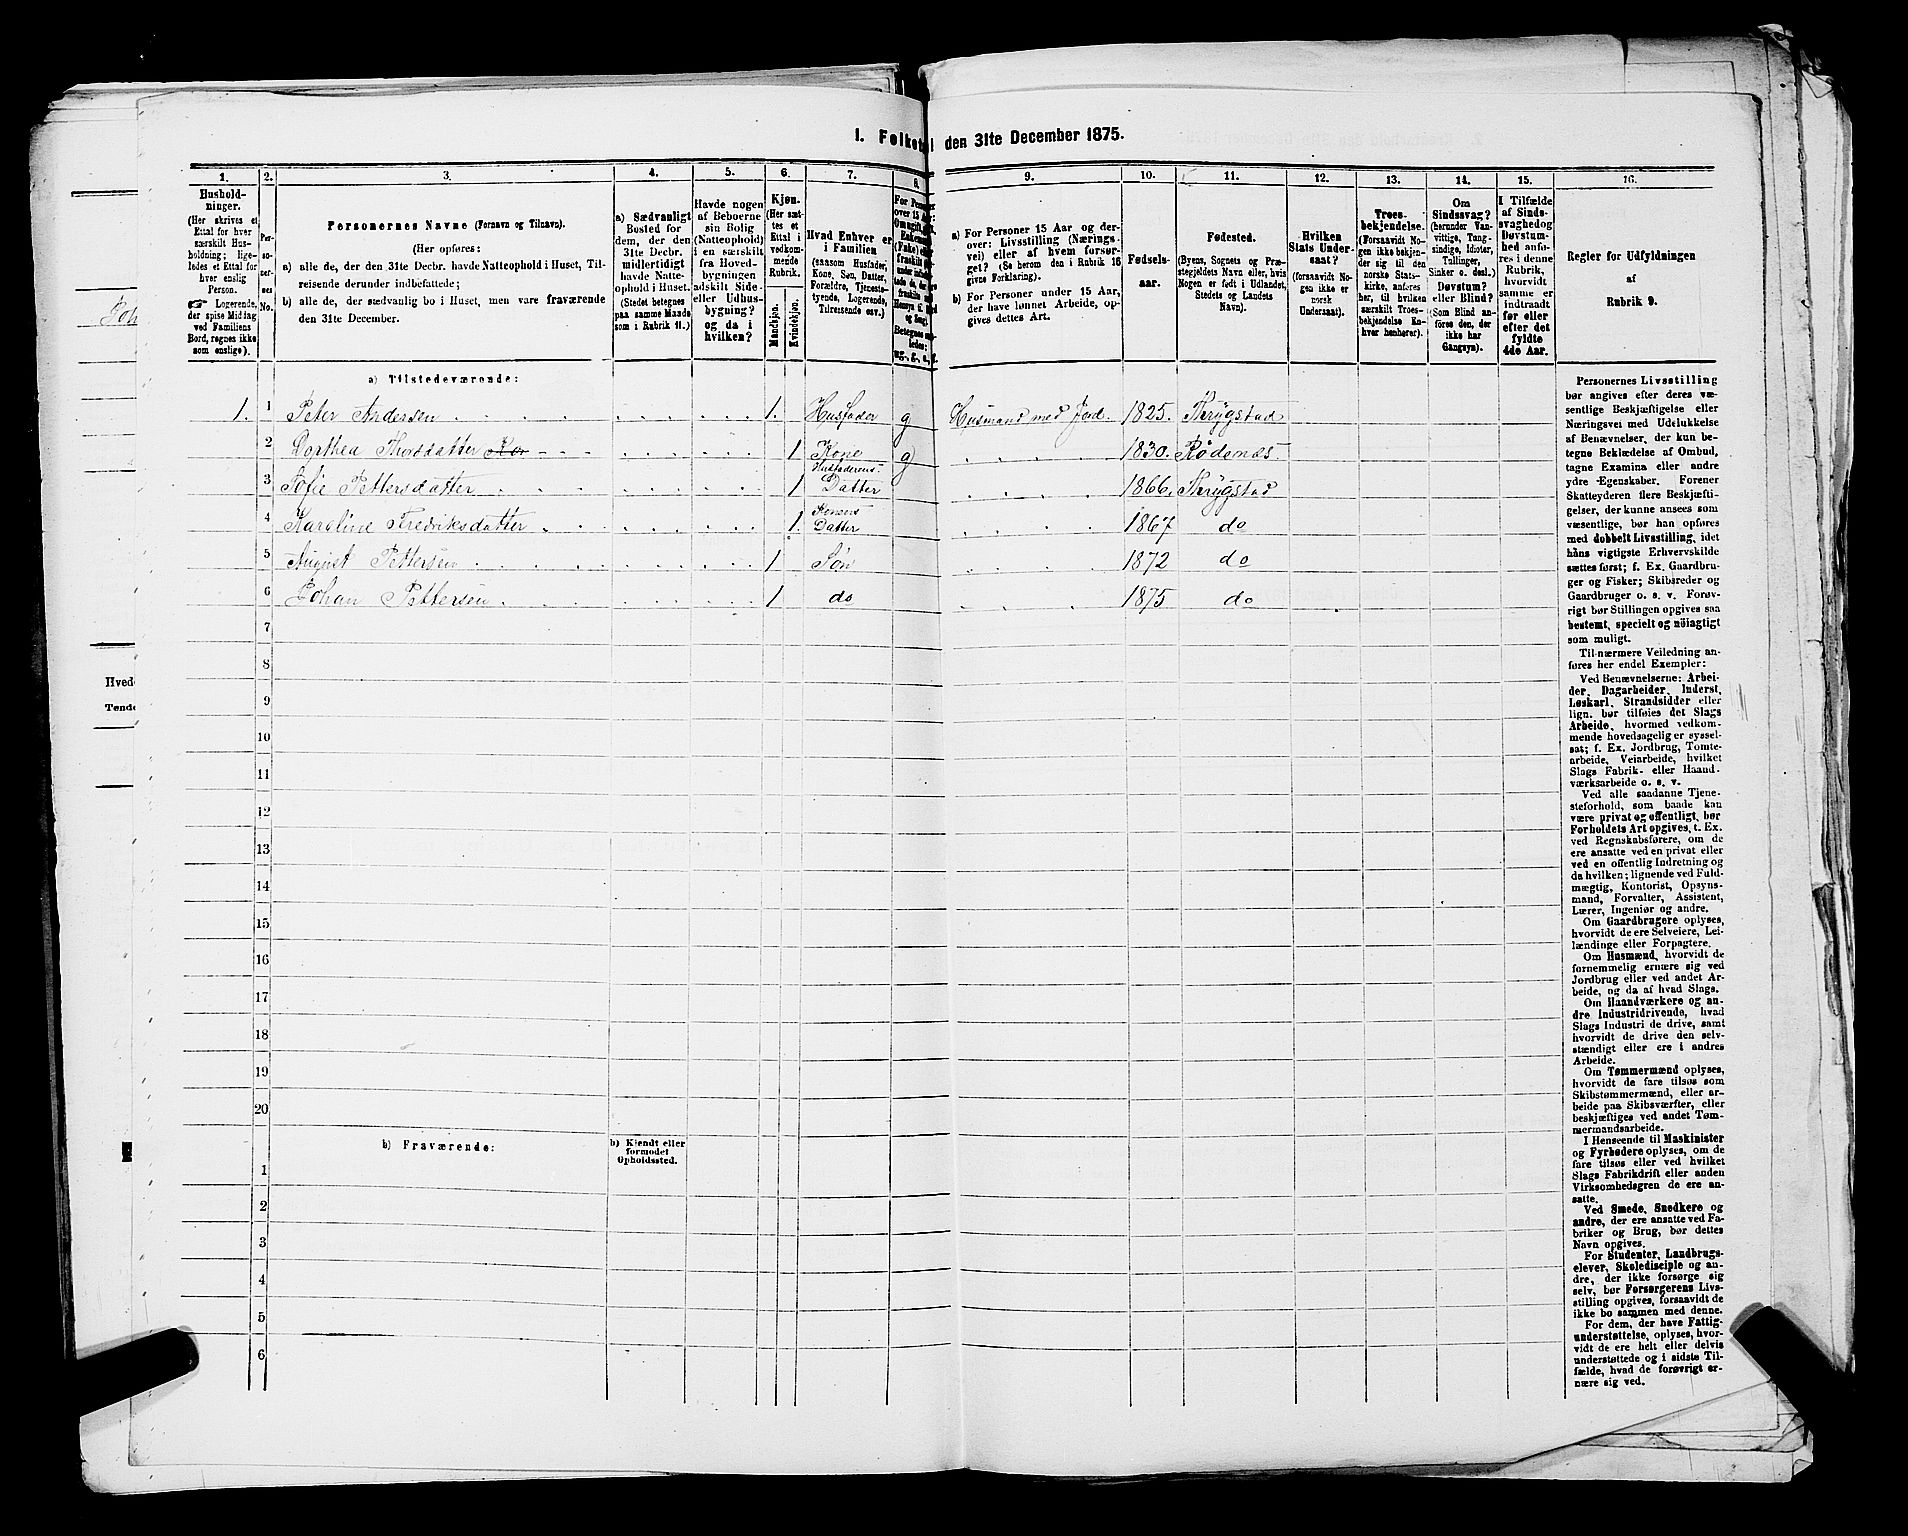 1. Folketal den 31te December 1875.
1.
2.
3.
4.
5.
6.
7.
8.
9.
10.
11.
12.
13.
14.
15.
16.
Hushold-
ninger.
(Her skrives et
Ettal for hver
særskilt Hus-
holdning; lige-
ledes et Ettal for
hver enslig
Person.
☛ Logerende,
der spise Middag
ved Familiens
Bord, regnes ikke
som enslige).
Per-
so-
ner-
nes
No.
Personernes Navne (Fornavn og Tilnavn).
(Her opføres:
a) alle de, der den 31te Decbr. havde Natteophold i Huset, Til-
reisende derunder indbefattede;
b) alle de, der sædvanlig bo i Huset, men vare fraværende
den 31te December.
a) Sædvanligt
Bosted for
dem, der den
31te Decbr.
midlertidigt
havde Natte-
ophold i Huset.
(Stedet betegnes
paa samme Maade
som i Rubrik 11.)
Havde nogen
af Beboerne
sin Bolig
(Natteophold)
i en særskilt
fra Hoved-
bygningen
adskilt Side-
eller Udhus-
bygning?
og da i
hvilken?
Kjøn.
(Her sæt-
tes et
Ettal i
vedkom-
mende
Rubrik.
Mandkjøn.
Kvindekjøn.
Hvad Enhver er
i Familien
(saasom Husfader,
Kone, Søn, Datter,
Forældre, Tjeneste-
tyende, Logerende,
Tilreisende osv.)
For Personer
over 15 Aar:
a) For Personer 15 Aar og der-
over: Livsstilling (Nærings-
vei) eller af hvem forsør-
get? (Se herom den i Rubrik 16
givne Forklaring).
b) For Personer under 15 Aar,
der have lønnet Arbeide, op-
gives dettes Art.
Fødsels-
aar.
Fødested.
(Byens, Sognets og Præ-
stegjeldets Navn eller, hvis
Nogen er født i Udlandet,
Stedets og Landets
Navn).
Hvilken
Stats Under-
saat?
(forsaavidt No-
gen ikke er
norsk
Undersaat).
Troes-
bekjendelse.
(Forsaavidt No-
gen ikke bekjen-
der sig til den
norske Stats-
kirke, anføres
her, til hvilken
særskilt Troes-
bekjendelse En-
hver henhører).
Om
Sindssvag?
(herunder Van-
vittige, Tung-
sindige, Idioter,
Tullinger,
Sinker o. desl.)
Døvstum?
eller Blind?
(Som Blind an-
føres den, der
ikke har
Gangsyn).
I Tilfælde
af Sinds-
svaghed og
Døvstum-
hed anfø-
res i denne
Rubrik,
hvorvidt
samme er
indtraadt
før eller
efter det
fyldte
4de Aar.
Regler for Udfyldningen
af
Rubrik 9.
a) Tilstedeværende:
1. 1 Peter Andersen 1. Husfader g Husmand med Jord. 1825. Thrygstad
2 Dorthea Thorsdatter Ko 1 Kone g 1830. Rødenæs
3 Sofie Pettersdatter 1 Husfaderens Datter 1866. Thrygstad
4 Karoline Fredriksdatter 1. Konens Datter 1867 do
5 August Pettersen 1 Søn 1872 do
6 Johan Pettersen 1 do 1875 do
7
8
9
10
11
12
13
14
15
16
17
18
19
20
b) Fraværende:
b) Kjendt eller
formodet
Opholdssted.
1
2
3
4
5
6
Personernes Livsstilling
bør angives efter deres væ-
sentlige Beskjæftigelse eller
Næringsvei med Udelukkelse
af Benævnelser, der kun be-
tegne Beklædelse af Ombud,
tagne Examina eller andre
ydre Egenskaber. Forener
Skatteyderen flere Beskjæfti-
gelser, der kunne ansees som
væsentlige, bør han opføres
med dobbelt Livsstilling, idet
hans vigtigste Erhvervskilde
sættes først; f. Ex. Gaardbru-
ger og Fisker; Skibsreder og
Gaardbruger o. s. v. Forøv-
rigt bør Stillingen opgives saa
bestemt, specielt og nöiagtigt
som muligt.
Til nærmere Veiledning an-
føres her endel Exempler:
Ved Benævnelserne: Arbei-
der, Dagarbeider, Inderst,
Løskarl, Strandsidder eller
lign. bør tilføies det Slags
Arbeide, hvormed vedkom-
mende hovedsagelig er syssel-
sat; f. Ex. Jordbrug, Tomte-
arbeide, Veiarbeide, hvilket
Slags Fabrik- eller Haand-
værksarbeide o. s. v.
Ved alle saadanne Tjene-
steforhold, som baade kan
være privat og offentligt, bør
Forholdets Art opgives, t. Ex.
ved Regnskabsførere, om de
ere ansatte ved en privat eller
ved en offentlig Indretning og
da hvilken; lignende ved Fuld-
mægtig, Kontorist, Opsyns-
mand, Forvalter, Assistent,
Lærer, Ingeniør og andre.
Om Gaardbrugere oplyses,
hvorvidt de ere Selveiere, Lei-
lændinge eller Forpagtere.
Om Husmænd, hvorvidt de
fornemmelig ernære sig ved
Jordbrug eller ved andet Ar-
beide, og da af hvad Slags.
Om Haandværkere og an-
dre Industridrivende, hvad
Slags Industri de drive, samt
hvorvidt de drive den selv-
stændigt eller ere i andres
Arbeide.
Om Tømmermænd oplyses,
hvorvidt de fare tilsøs som
Skibstømmermænd, eller ar-
beide paa Skibsværfter, eller
beskjæftiges ved andet Tøm-
mermandsarbeide.
I Henseende til Maskinister
og Fyrbødere oplyses, om de
fare tilsøs eller ved hvilket
Slags Fabrikdrift eller anden
Virksomhedsgren de ere an-
satte.
Ved Smede, Snedkere og
andre, der ere ansatte ved Fa-
briker og Brug, bør dettes
Navn opgives.
For Studenter, Landbrugs-
elever, Skoledisciple og an-
dre, der ikke forsørge sig
selv, bør Forsørgerens Livs-
stilling opgives, forsaavidt de
ikke bo sammen med denne.
For dem, der have Fattig-
understøttelse, oplyses, hvor-
vidt de ere helt eller delvis
understøttede og i sidste Til-
fælde, hvad de forøvrigt er-
nære sig ved.
Joh
Hved
Tønde